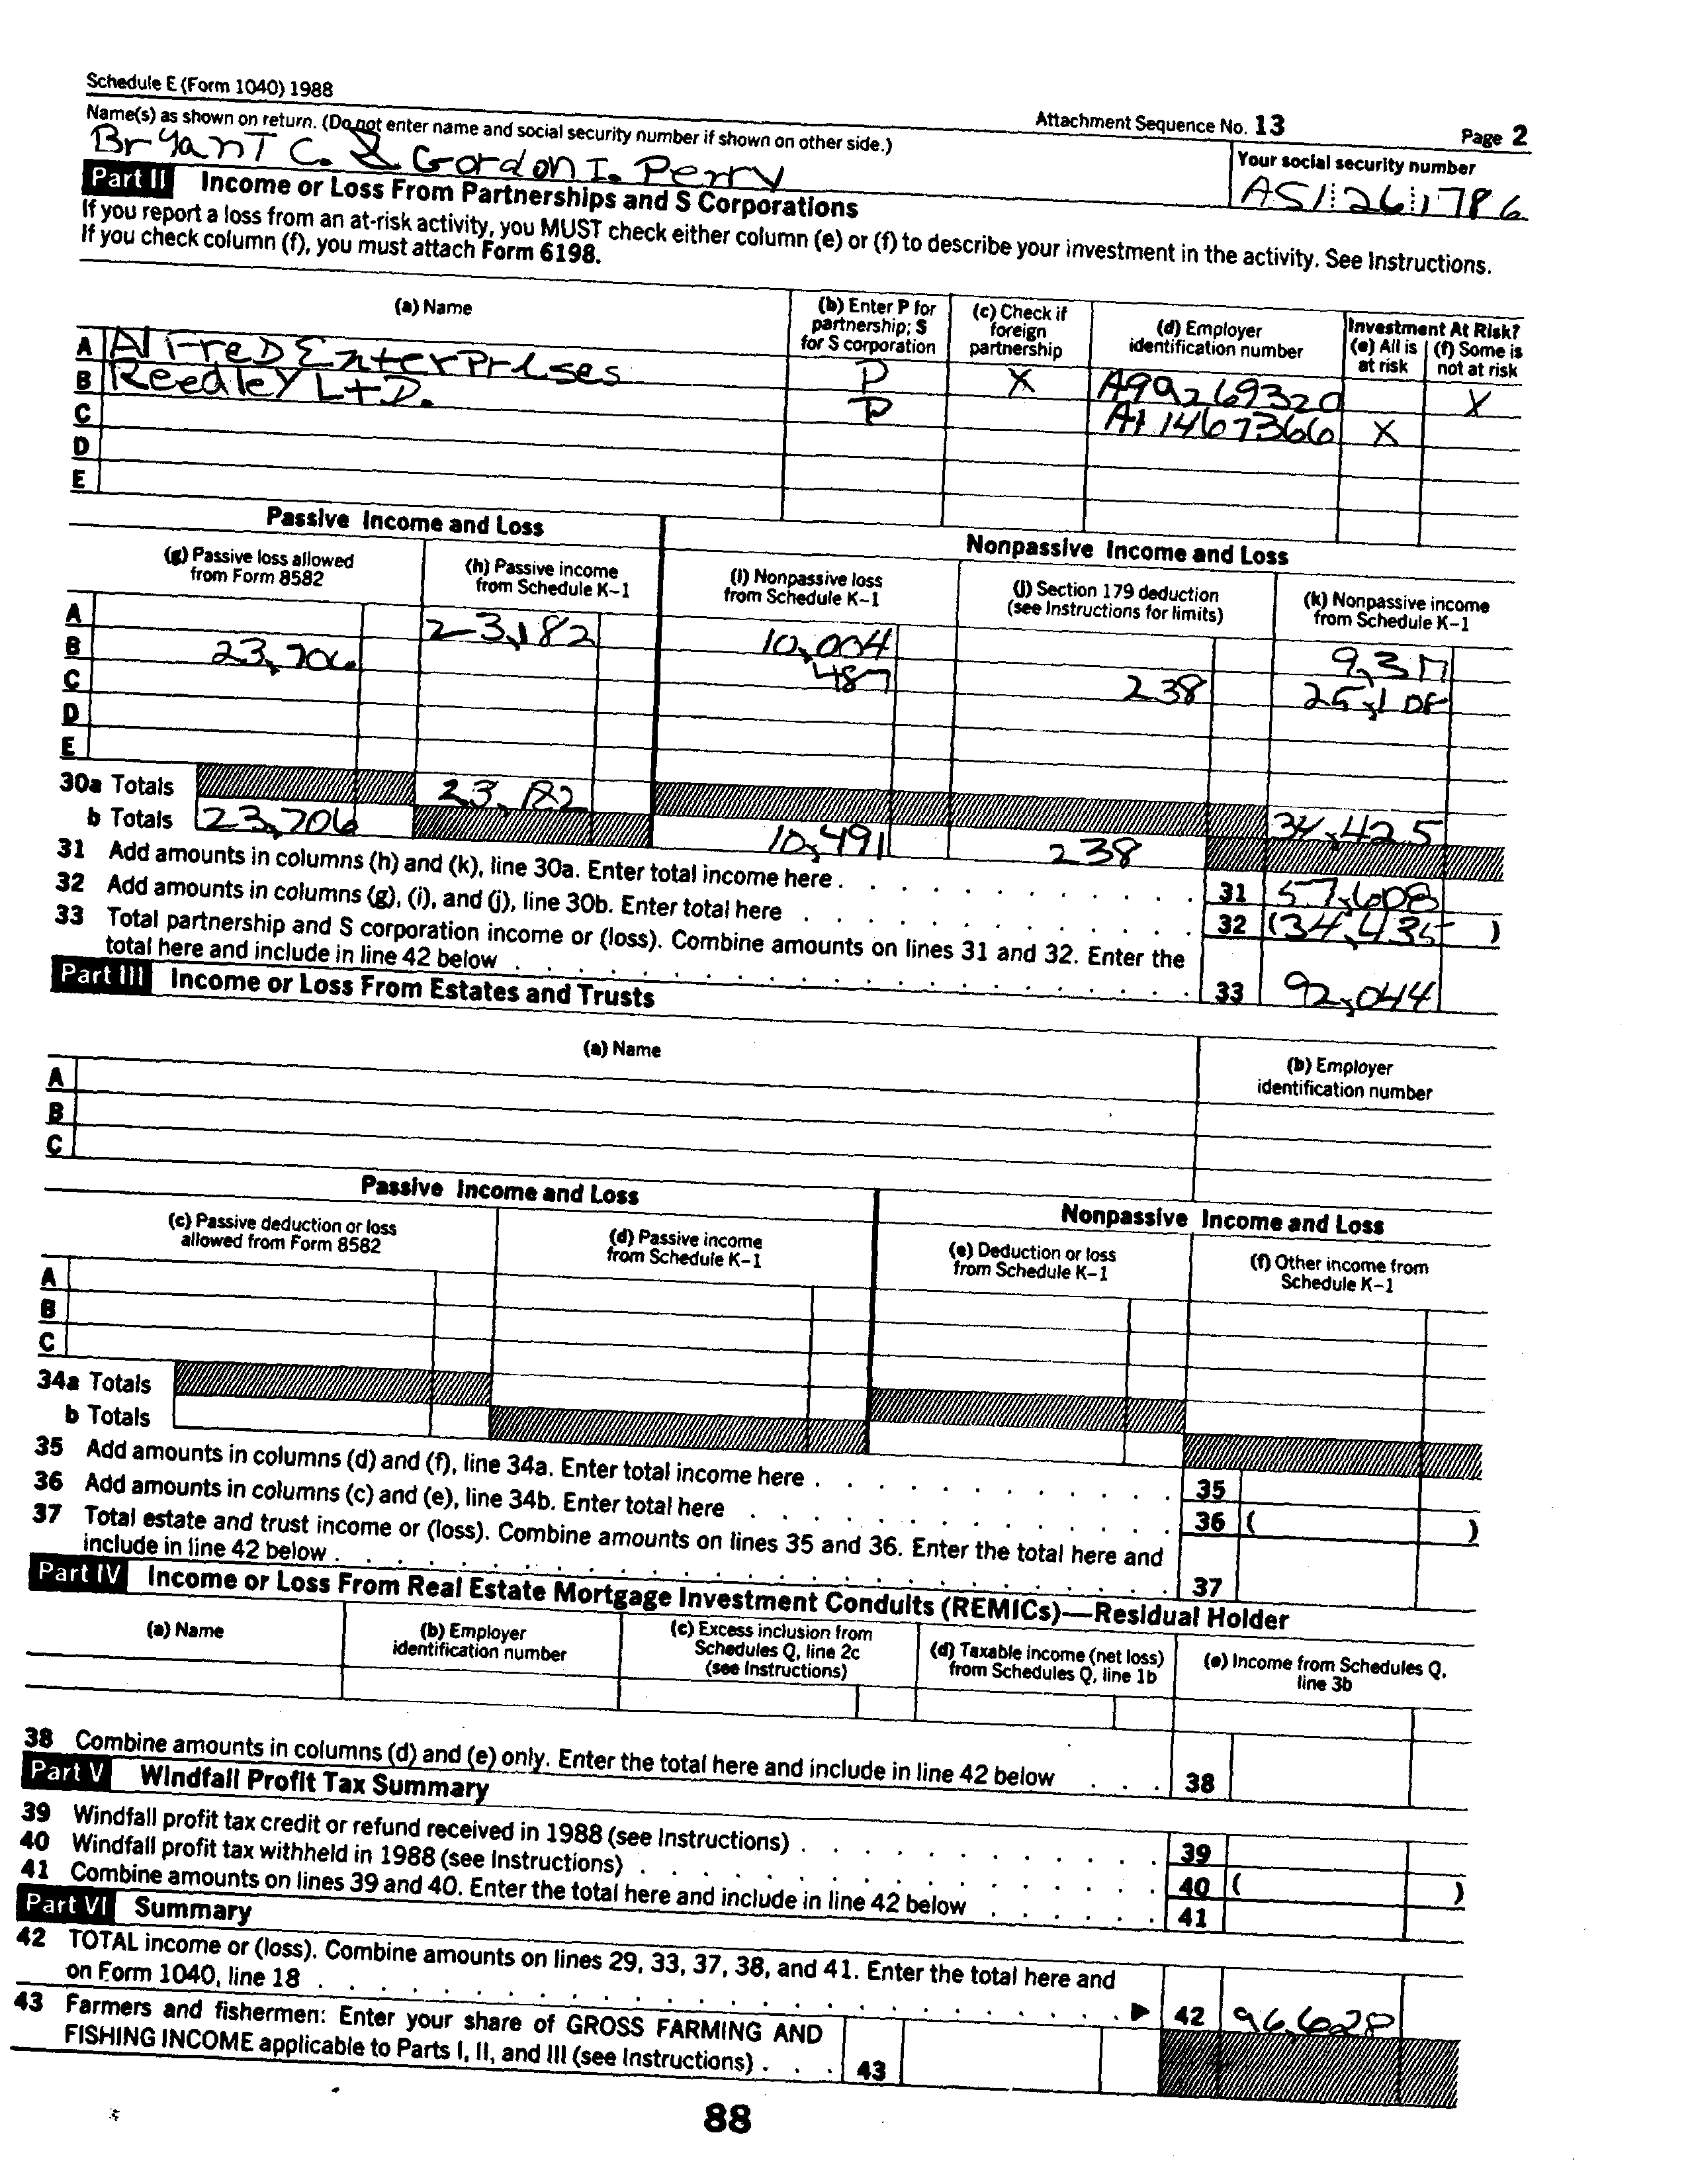 Schedule E (Form 1040) 1988
Attachment Sequence No. 13 Page 2
Name(s) as shown on return. (Do not enter name and social security number if shown on other side.)
Your social security number
BryanT C. & Gordon I. Perry
AS1 26 1786
Part II Income or Loss From Partnerships and S Corporations
If you report a loss from an at-risk activity, you MUST check either column (e) or (f) to describe your investment in the activity. See Instructions.
If you check column (f), you must attach Form 6198.
(a) Name
(b) Enter P for partnership; S for S corporation
(c) Check if foreign partnership
(d) Employer identification number
Investment At Risk?
(e) All is at risk
(f) Some is not at risk
A AlFreD EnterPrises P X A99269320 X
B Reedley LtD. P A114673660 X
C
D
E
Passive Income and Loss
Nonpassive Income and Loss
(g) Passive loss allowed from Form 8582
(h) Passive income from Schedule K-1
(i) Nonpassive loss from Schedule K-1
(j) Section 179 deduction (see Instructions for limits)
(k) Nonpassive income from Schedule K-1
A 23,182 10,004
B 23,706 487 238
C
D
E
30a Totals 23,182 34,425
b Totals 23,706 10,491 238
31 Add amounts in columns (h) and (k), line 30a. Enter total income here 31 57,608
32 Add amounts in columns (g), (i), and (j), line 30b. Enter total here 32 (34,435)
33 Total partnership and S corporation income or (loss). Combine amounts on lines 31 and 32. Enter the
total here and include in line 42 below 33 92,044
Part III Income or Loss From Estates and Trusts
(a) Name
(b) Employer identification number
A
B
C
Passive Income and Loss
Nonpassive Income and Loss
(c) Passive deduction or loss allowed from Form 8582
(d) Passive income from Schedule K-1
(e) Deduction or loss from Schedule K-1
(f) Other income from Schedule K-1
A
B
C
34a Totals
b Totals
35 Add amounts in columns (d) and (f), line 34a. Enter total income here 35
36 Add amounts in columns (c) and (e), line 34b. Enter total here 36 ( )
37 Total estate and trust income or (loss). Combine amounts on lines 35 and 36. Enter the total here and
include in line 42 below 37
Part IV Income or Loss From Real Estate Mortgage Investment Conduits (REMICs)—Residual Holder
(a) Name
(b) Employer identification number
(c) Excess inclusion from Schedules Q, line 2c (see Instructions)
(d) Taxable income (net loss) from Schedules Q, line 1b
(e) Income from Schedules Q, line 3b
38 Combine amounts in columns (d) and (e) only. Enter the total here and include in line 42 below 38
Part V Windfall Profit Tax Summary
39 Windfall profit tax credit or refund received in 1988 (see Instructions) 39
40 Windfall profit tax withheld in 1988 (see Instructions) 40 ( )
41 Combine amounts on lines 39 and 40. Enter the total here and include in line 42 below 41
Part VI Summary
42 TOTAL income or (loss). Combine amounts on lines 29, 33, 37, 38, and 41. Enter the total here and
on Form 1040, line 18 42 96,628
43 Farmers and fishermen: Enter your share of GROSS FARMING AND
FISHING INCOME applicable to Parts I, II, and III (see Instructions) 43
88